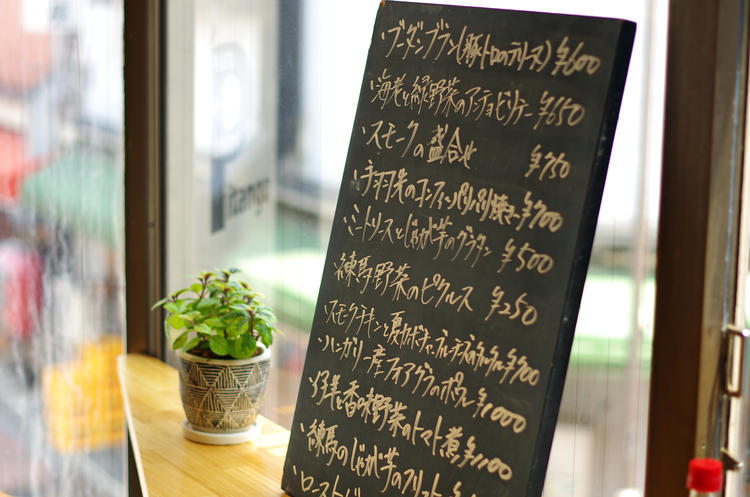 ・ブーダンブラン(豚トロのテリーヌ) ¥600
・海老と緑野菜のアンチョビソテー ¥650
・スモークの盛合せ ¥750
・手羽先のコンフィ パリパリ焼き ¥700
・ミートソースとじゃが芋のグラタン ¥500
・練馬野菜のピクルス ¥250
・スモークチキンと夏カボチャ、ブルーチーズの ¥900
・ハンガリー産フォアグラのポワレ ¥1000
・仔羊と香味野菜のトマト煮 ¥1100
・練馬のじゃが芋のフリット
・ロースト
itango